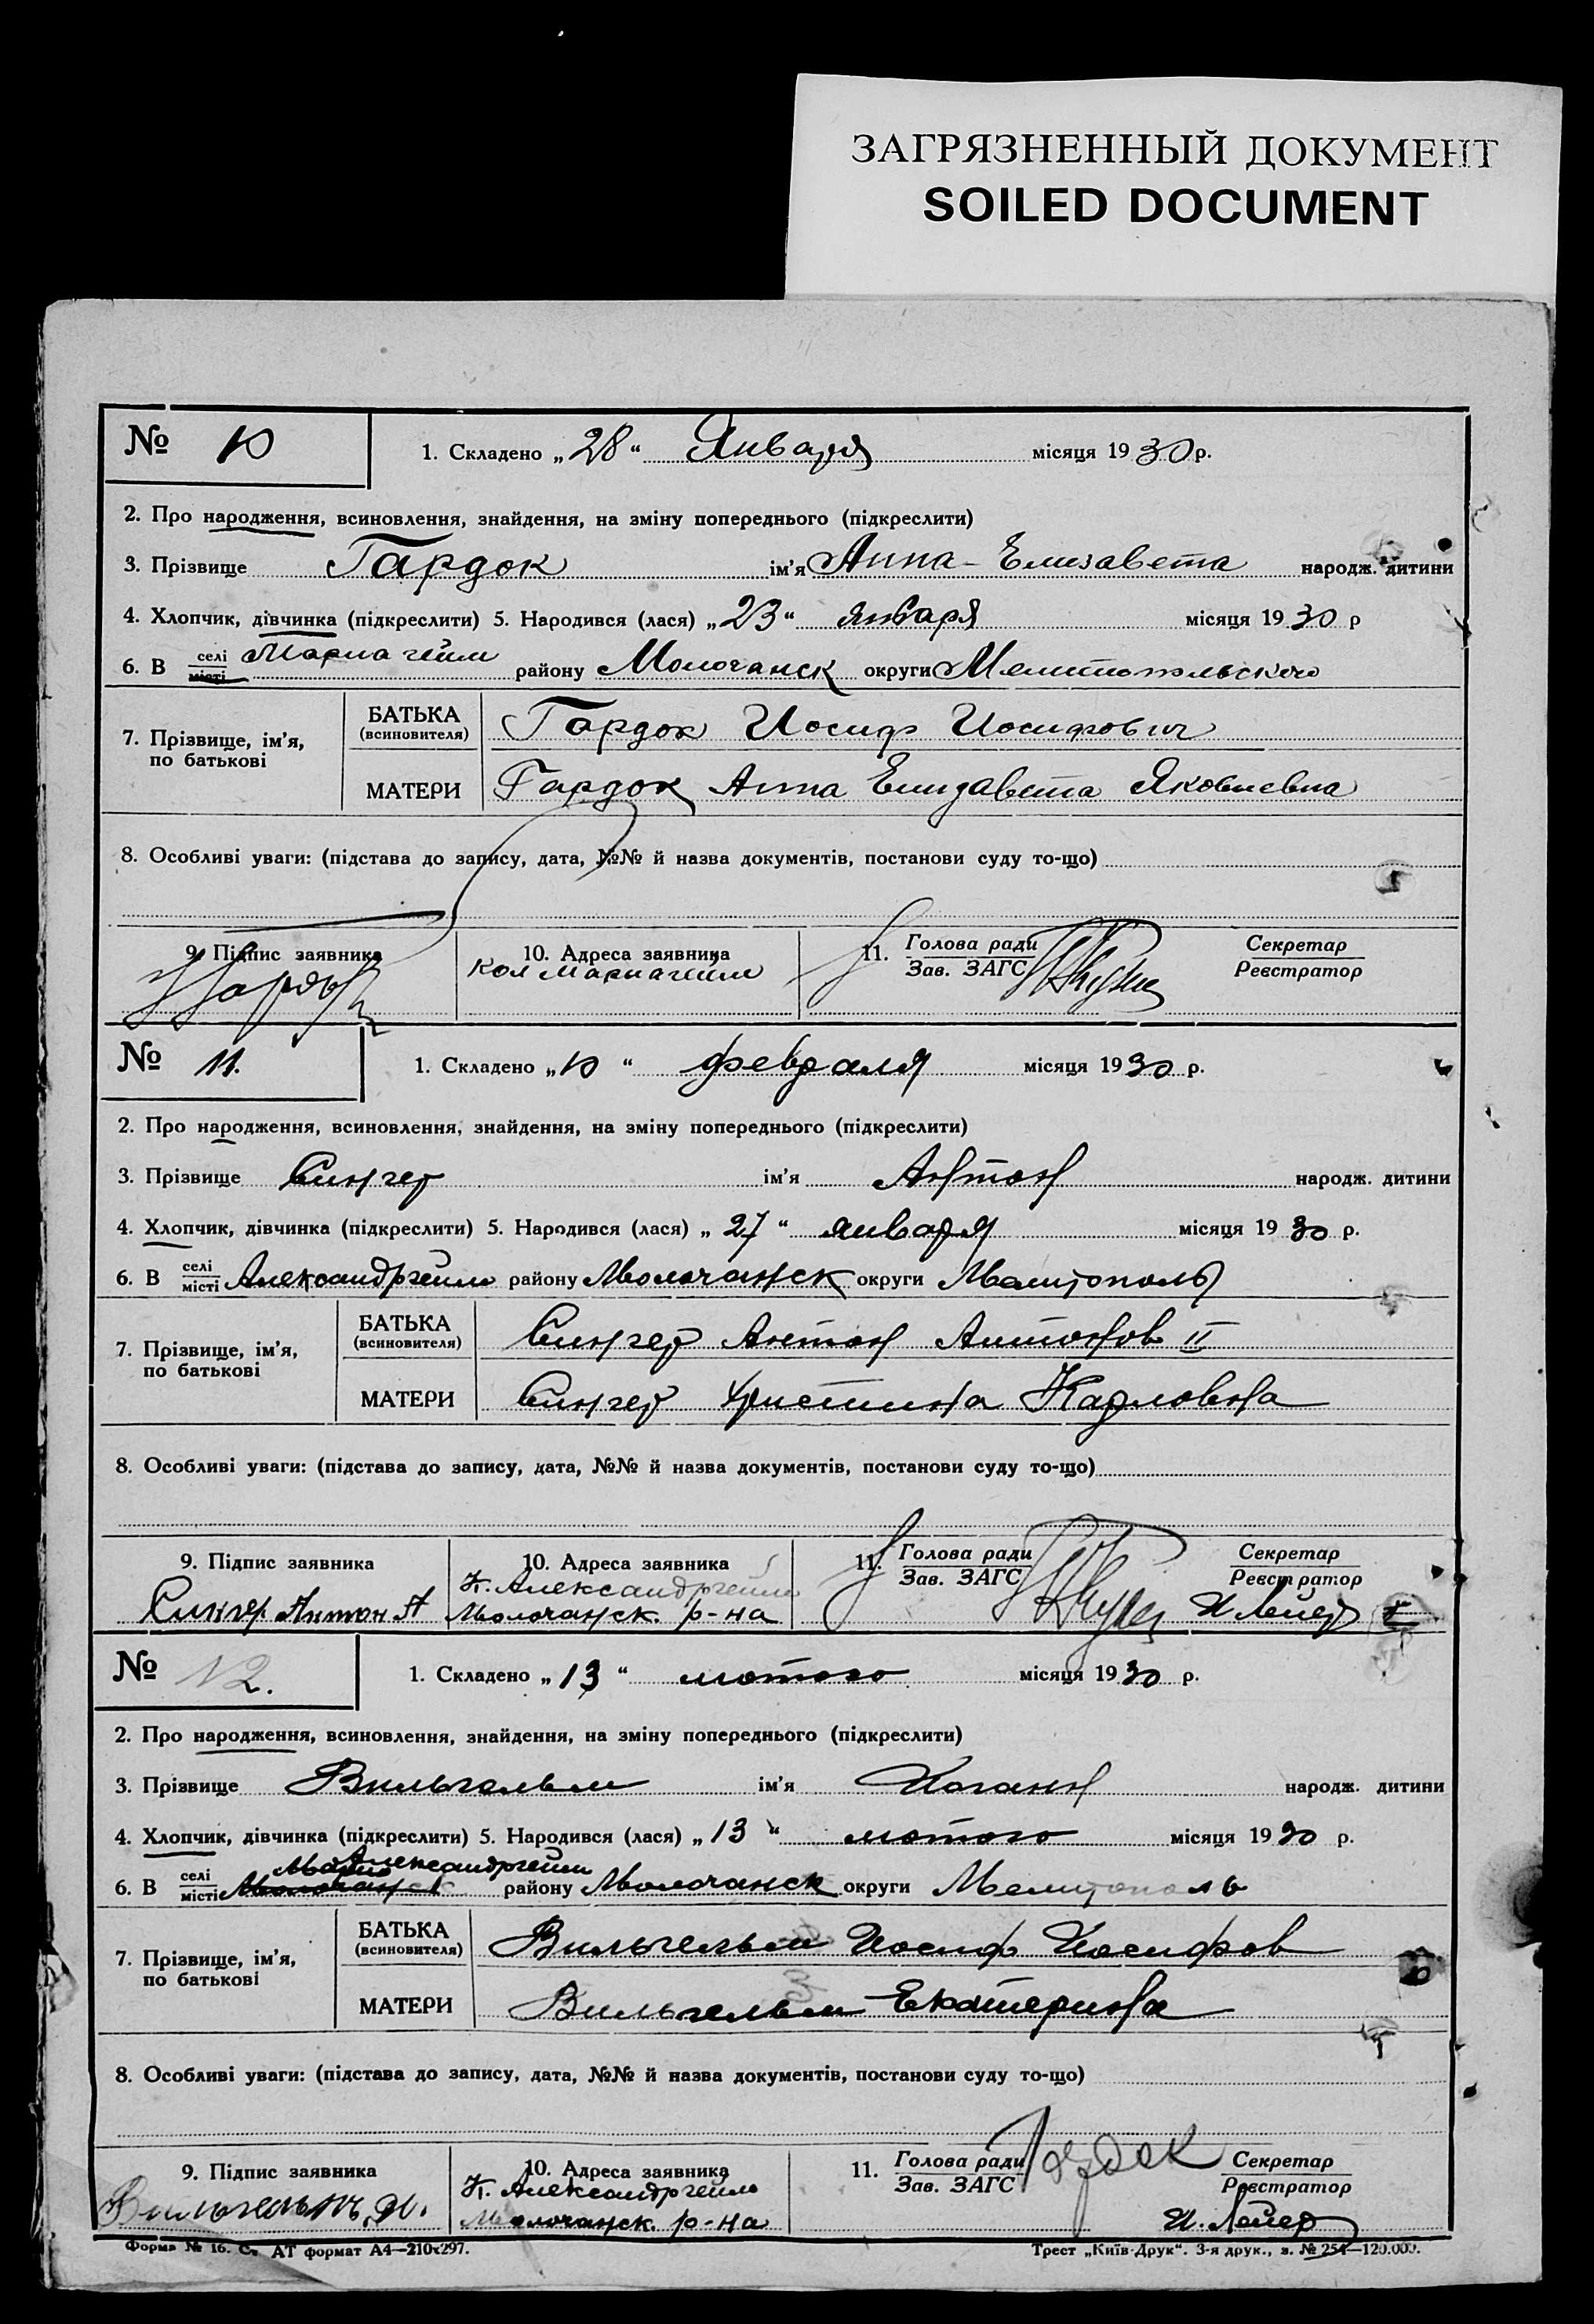 ЗАГРЯЗНЕННЫЙ ДОКУМЕНТ
SOILED DOCUMENT
№ 10 1. Складено „28“ Января місяця 1930 р.
2. Про народження, всиновлення, знайдення, на зміну попереднього (підкреслити)
3. Прізвище Гардок ім'я Анна-Елизавета народж. дитини
4. Хлопчик, дівчинка (підкреслити) 5. Народився (лася) „23“ января місяця 1930 р
6. В селі місті Мариагейм району Молочанск округи Мелитопольского
7. Прізвище, ім'я, по батькові
БАТЬКА (всиновителя) Гардок Иосиф Иосифович
МАТЕРИ Гардок Анна Елизавета Яковлевна
8. Особливі уваги: (підстава до запису, дата, №№ й назва документів, постанови суду то-що)
9. Підпис заявника 10. Адреса заявника 11. Голова ради Секретар
Зав. ЗАГС Реєстратор
кол Мариагейм
№ 11. 1. Складено „10“ февраля місяця 1930 р.
2. Про народження, всиновлення, знайдення, на зміну попереднього (підкреслити)
3. Прізвище Сингер ім'я Антон народж. дитини
4. Хлопчик, дівчинка (підкреслити) 5. Народився (лася) „27“ января місяця 1930 р.
6. В селі місті Александргейм району Молочанск округи Мелитополь
7. Прізвище, ім'я, по батькові
БАТЬКА (всиновителя) Сингер Антон Антонов II
МАТЕРИ Сингер Христина Карловна
8. Особливі уваги: (підстава до запису, дата, №№ й назва документів, постанови суду то-що)
9. Підпис заявника 10. Адреса заявника 11. Голова ради Секретар
Зав. ЗАГС Реєстратор
К. Александргейм
Сингер Антон А Молочанск. р-на И Лейер
№ 12. 1. Складено „13“ лютого місяця 1930 р.
2. Про народження, всиновлення, знайдення, на зміну попереднього (підкреслити)
3. Прізвище Вильгельм ім'я Иоганн народж. дитини
4. Хлопчик, дівчинка (підкреслити) 5. Народився (лася) „13“ лютого місяця 1930 р.
Александргейм
6. В селі місті Молочанск району Молочанск округи Мелитополь
7. Прізвище, ім'я, по батькові
БАТЬКА (всиновителя) Вильгельм Иосиф Иосифов
МАТЕРИ Вильгельм Екатерина
8. Особливі уваги: (підстава до запису, дата, №№ й назва документів, постанови суду то-що)
9. Підпис заявника 10. Адреса заявника 11. Голова ради Гардок Секретар
Зав. ЗАГС Реєстратор
К. Александргейм
Вильгельм. И. Молочанск. р-на И. Лейер
Форма № 16. С. АТ формат А4—210х297. Трест „Київ-Друк“. 3-я друк., з. № 254—120.000.